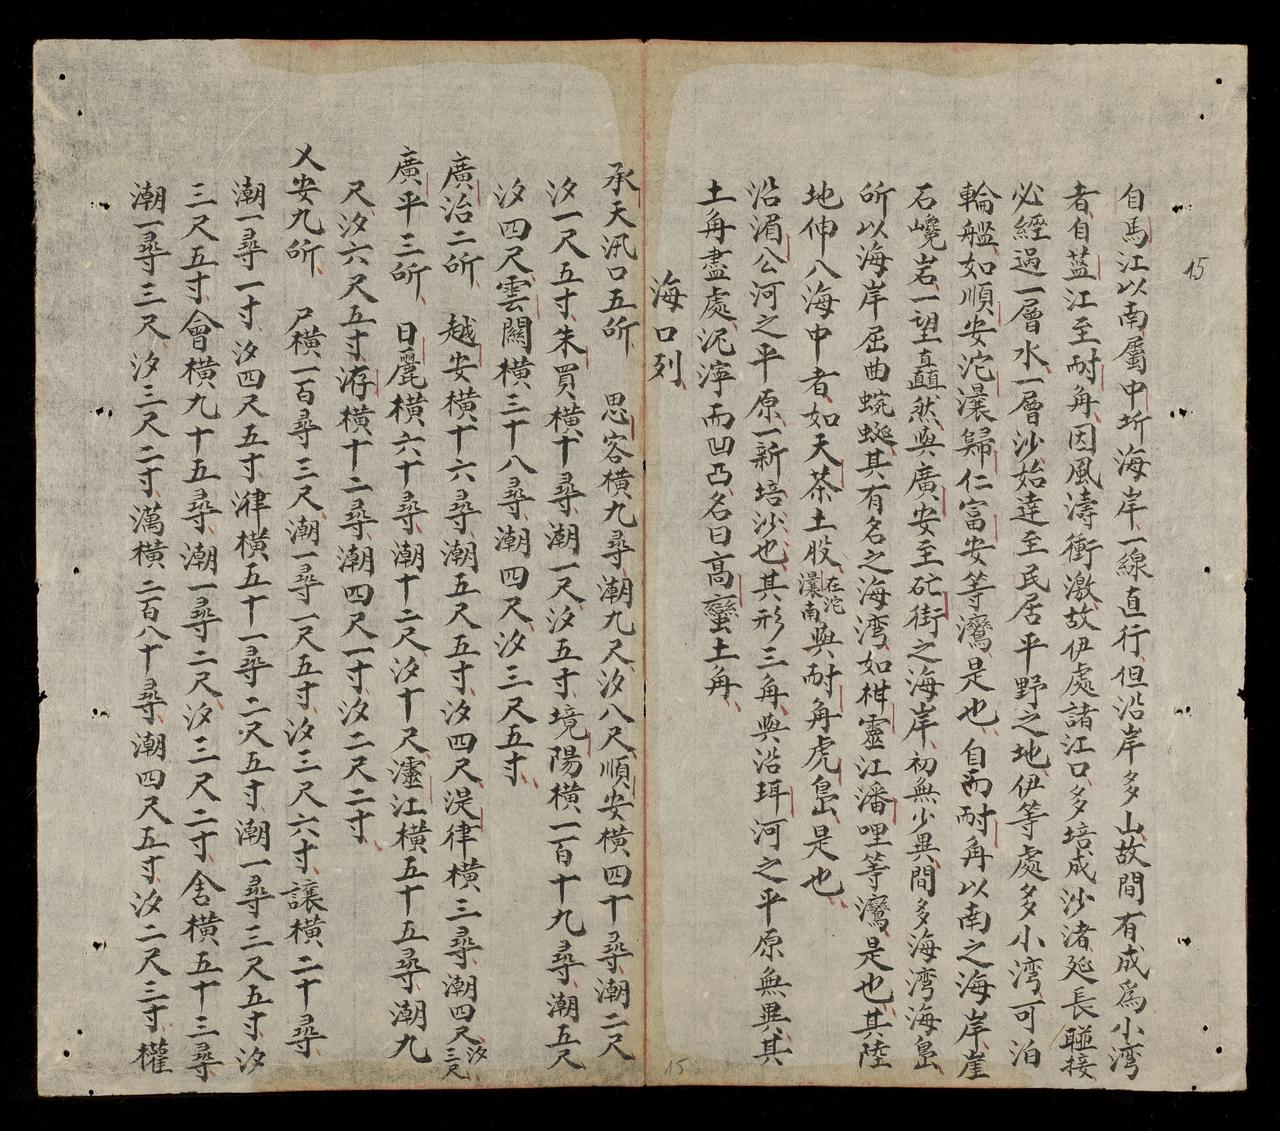 15
自馬江以南屬中圻海岸一線直行但沿岸多山故間有成為小湾
者自藍江至耐角因風濤衝激故伊處諸江口多培成沙渚延長聯接
必經過一層水一層沙始達至民居平野之地伊等處多小湾可泊
輪艦如順安沱㶞歸仁富安等灣是也自耐角以南之海岸崖
石巉岩一望直巔然與廣安至砣街之海岸初無少異間多海湾海島
所以海岸屈曲蜿蜒其有名之海湾如柑靈江潘哩等灣是也其陸
地伸入海中者如天茶土股在沱㶞南與耐角虎島是也
沿湄公河之平原一新培沙也其形三角與沿珥河之平原無異其
土角盡處泥濘而凹凸名曰高蠻土角
海口列
承天汛口五所 思容橫九尋潮九尺汐八尺順安橫四十尋潮二尺
汐一尺五寸朱買橫十尋潮一尺汐五寸境陽橫一百十九尋潮五尺
汐四尺雲關橫三十八尋潮四尺汐三尺五寸
廣治二所 越安橫十六尋潮五尺五寸汐四尺浞律橫三尋潮四尺汐三尺
廣平三所 日麗橫六十尋潮十二尺汐十尺𤅷江橫五十五尋潮九
尺汐六尺五寸洊橫十二尋潮四尺一寸汐二尺二寸
乂安九所 尸橫一百尋三尺潮一尋一尺五寸汐三尺六寸讓橫二十尋
潮一尋一寸汐四尺五寸潷橫五十一尋二尺五寸潮一尋三尺五寸汐
三尺五寸會橫九十五尋潮一尋二尺汐三尺二寸舍橫五十三尋
潮一尋三尺汐三尺二寸濿橫二百八十尋潮四尺五寸汐二尺三寸權
15